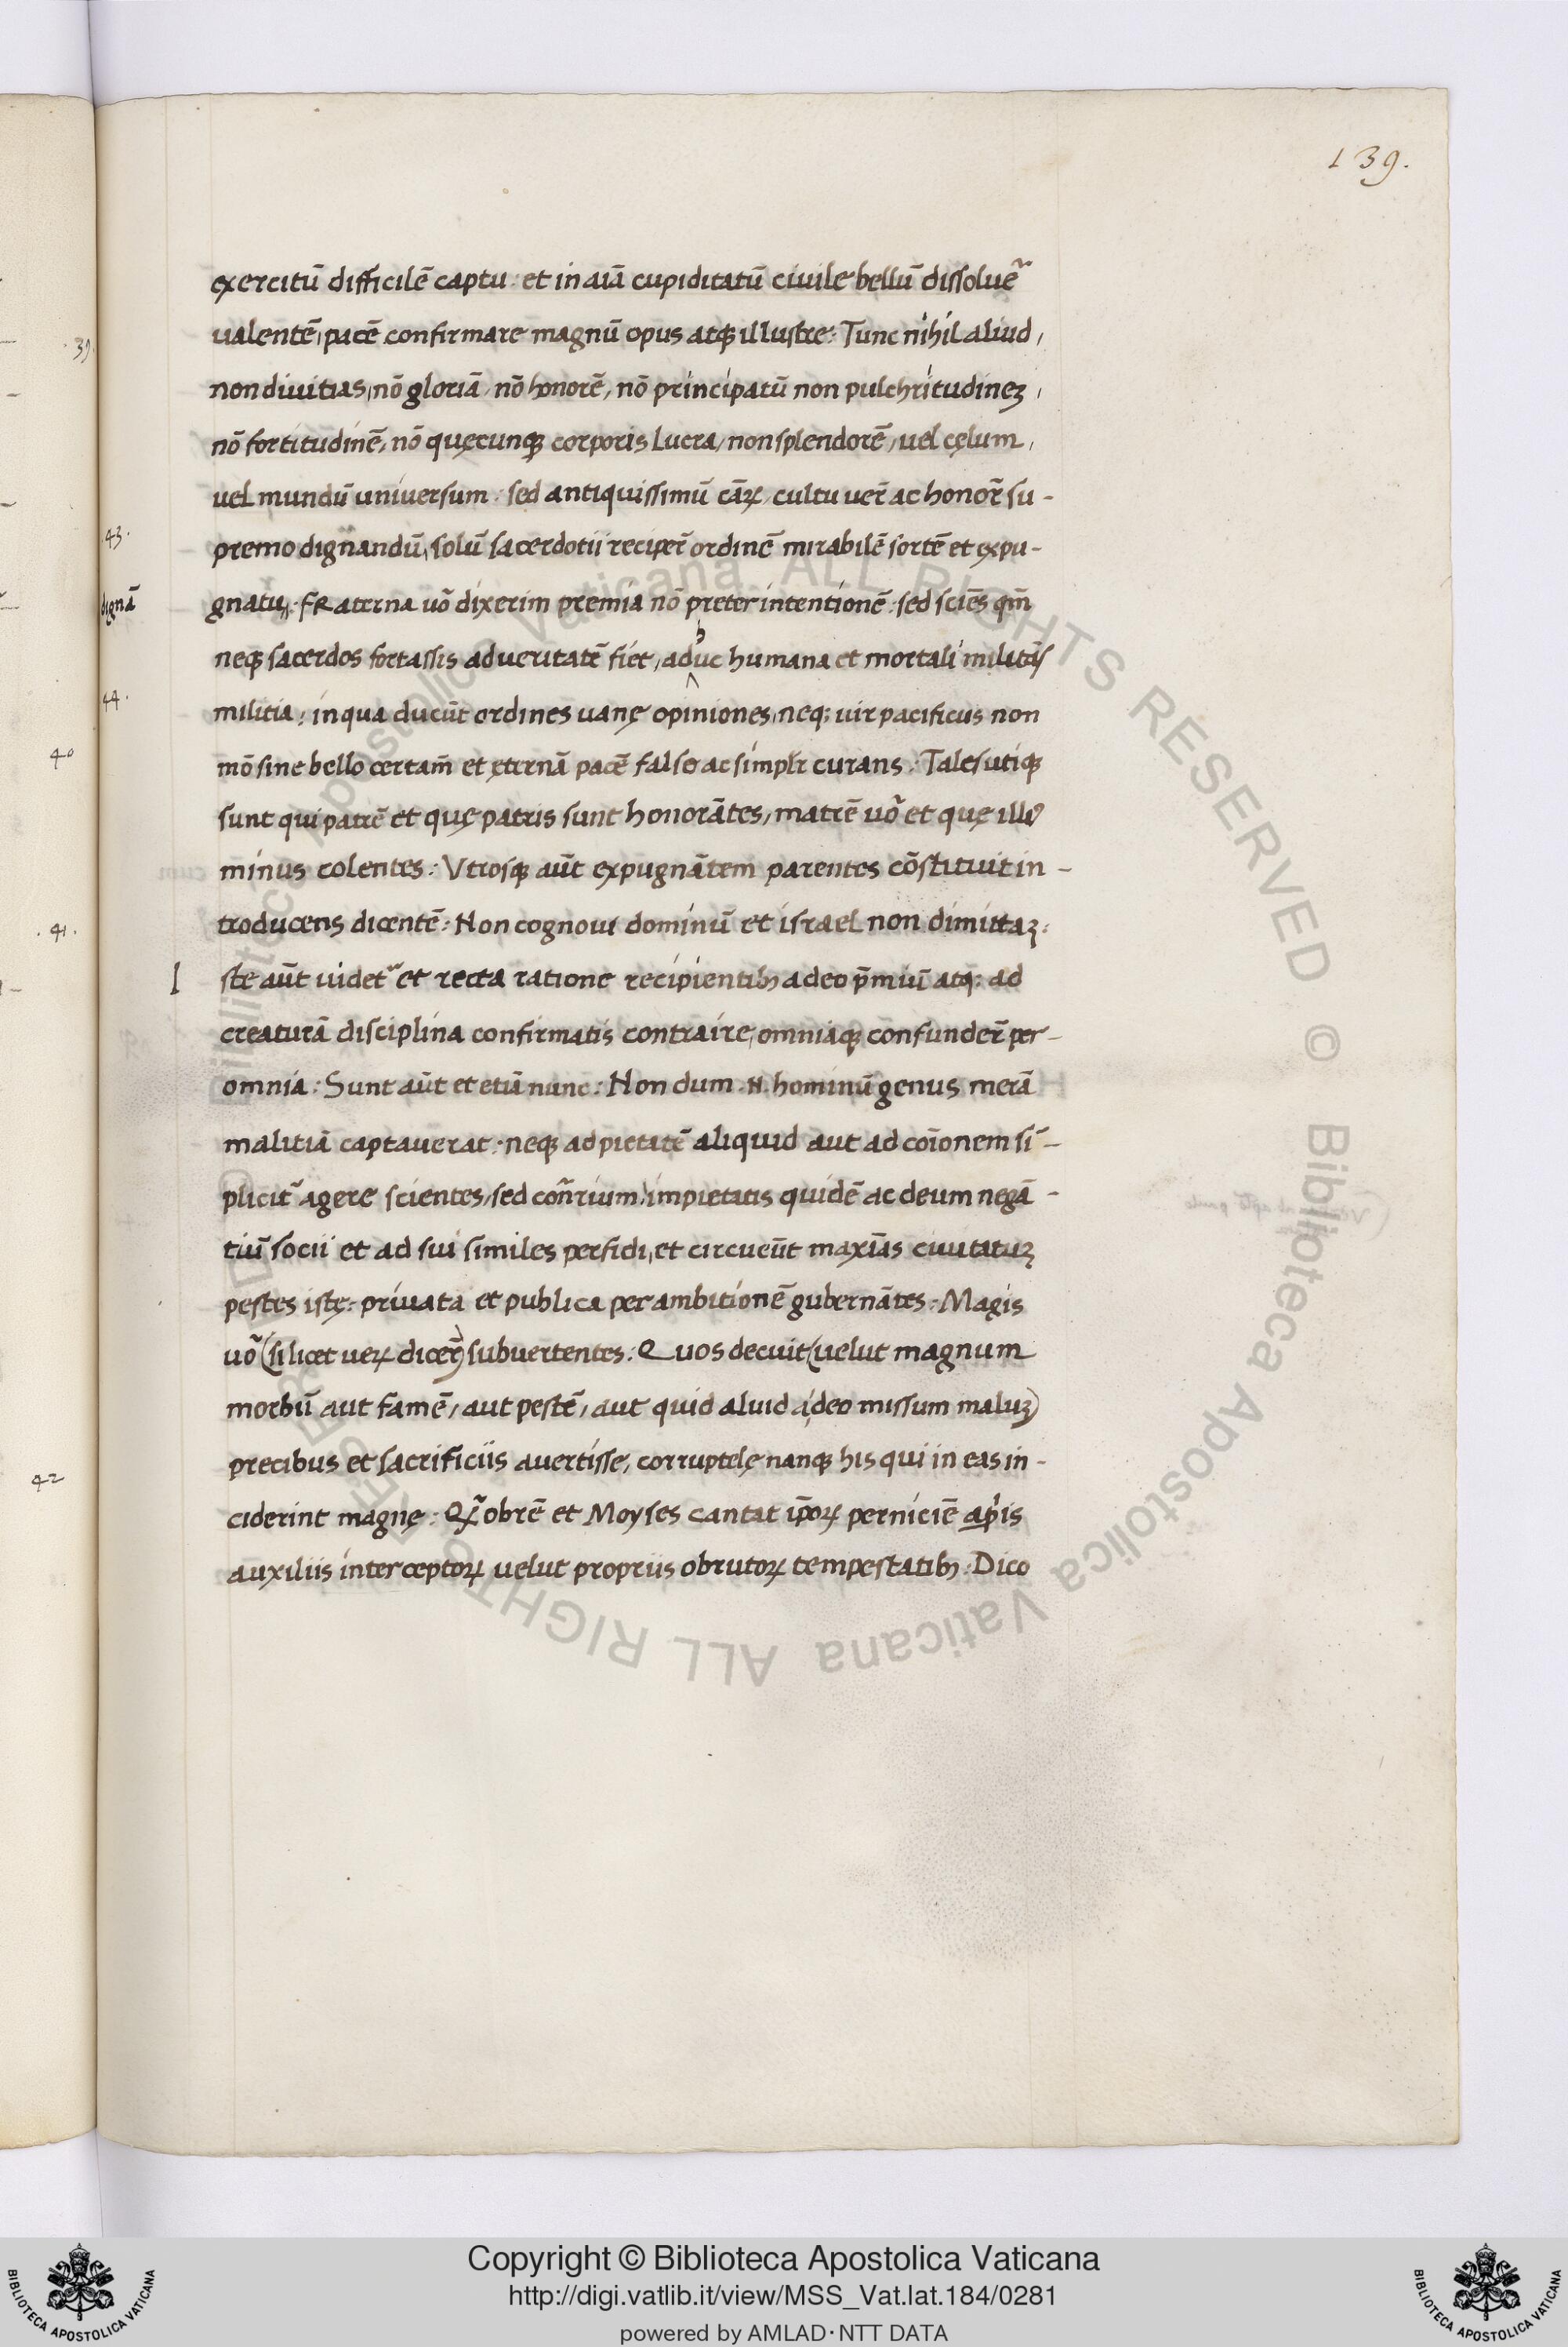 139.
exercitū difficilē captu : et in aīa cupiditatū civile bellū dissoluer̃
valentē, pacē confirmare magnū opus atqꝫ illustre : Tunc nihil aliud,
non divitias, nō gloriā, nō honorē, nō principatū non pulchritudineꝫ,
nō fortitudinē, nō quęcunqꝫ corporis lucra, non splendorē, vel cęlum,
vel mundū universum : sed antiquissimū cāꝝ, cultu uer̄ ac honor̄ su-
premo dignandū, solū sacerdotii reciper̄ ordinē mirabilē sortē et expu-
43.
dignā
gnatu : Fraterna uō dixerim premia nō preter intentionē : sed sciēs qm̄
neqꝫ sacerdos fortassis ad veritatē fiet, adhuc humana et mortali militās
44.
militia : in qua ducūt ordines vanę opiniones, neqꝫ vir pacificus non
mō sine bello certam̄ et ęternā pacē false ac simplr̄ curans : Tales utiqꝫ
sunt qui patrē et quę patris sunt honorātes, matrē uō et quę illiꝰ
minus colentes : Utrosqꝫ aūt expugnātem parentes cōstituit in-
troducens dicentē : Non cognovi dominū et israel non dimittaꝫ :
I ste aūt videt᷑ et recta ratione recipientibꝫ a deo p̄miū atqꝫ : ad
creaturā disciplina confirmatis contraire, omniaqꝫ confunder̄ per-
omnia : Sunt aūt et etiā nunc : Non dum .N. hominū genus merā
malitiā captaverat : neqꝫ ad pietatē aliquid aut ad coīonem sī-
plicit᷑ agere scientes, sed cōñrium, impietatis quidē ac deum negā-
tiū socii et ad sui similes perfidi, et circueūt maxīas civitatuꝫ
pestes istę : privata et publica per ambitionē gubernātes : Magis
uō (si licet ueꝝ dicer̄) subvertentes : Quos decuit (velut magnum
morbū aut famē, aut pestē, aut quid aliud a deo missum maluꝫ)
precibus et sacrificiis avertisse, corruptelę nanqꝫ his qui in eas in-
ciderint magnę : Qꝫ obrē et Moyses cantat ip̄oꝝ perniciē a p̱riis
auxiliis interceptoꝝ velut propriis obrutoꝝ tempestatibꝫ : Dico
39.
40
41.
42
Copyright © Biblioteca Apostolica Vaticana
http://digi.vatlib.it/view/MSS_Vat.lat.184/0281
powered by AMLAD·NTT DATA
BIBLIOTECA APOSTOLICA VATICANA
BIBLIOTECA APOSTOLICA VATICANA